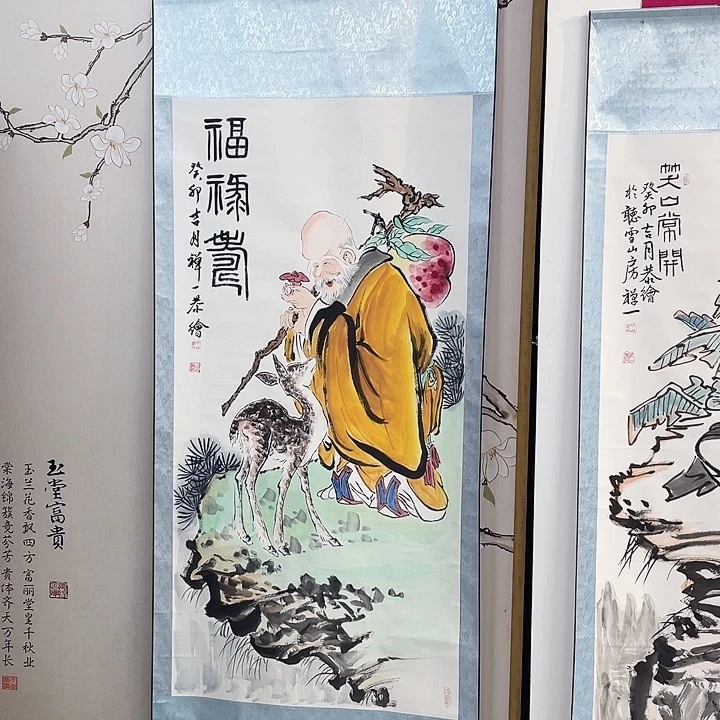 福禄寿
癸卯吉月禅一恭繪
笑口常開
癸卯吉月恭繪
於聽雪山房禅一
玉堂富貴
玉兰花香飘四方富丽堂皇千秋业
棠海锦簇竞芬芳贵体齐天万年长